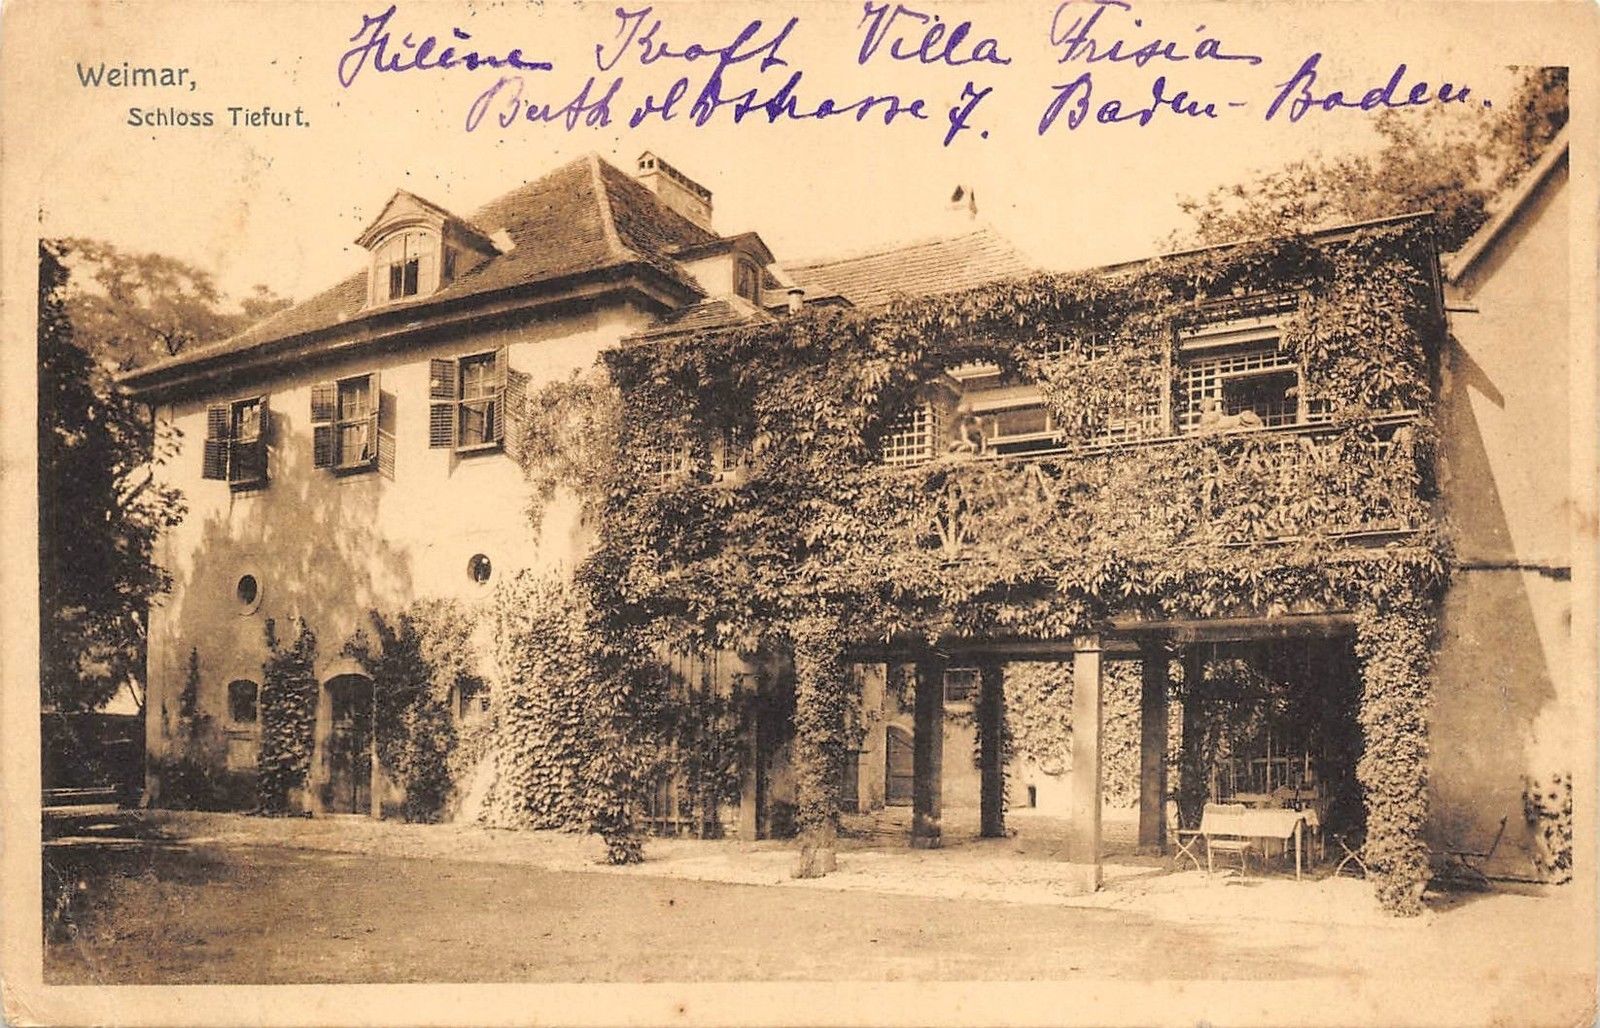 Hélène Kraft Villa Frisia
Bertholdstrasse 7. Baden-Baden.
Weimar,
Schloss Tiefurt.